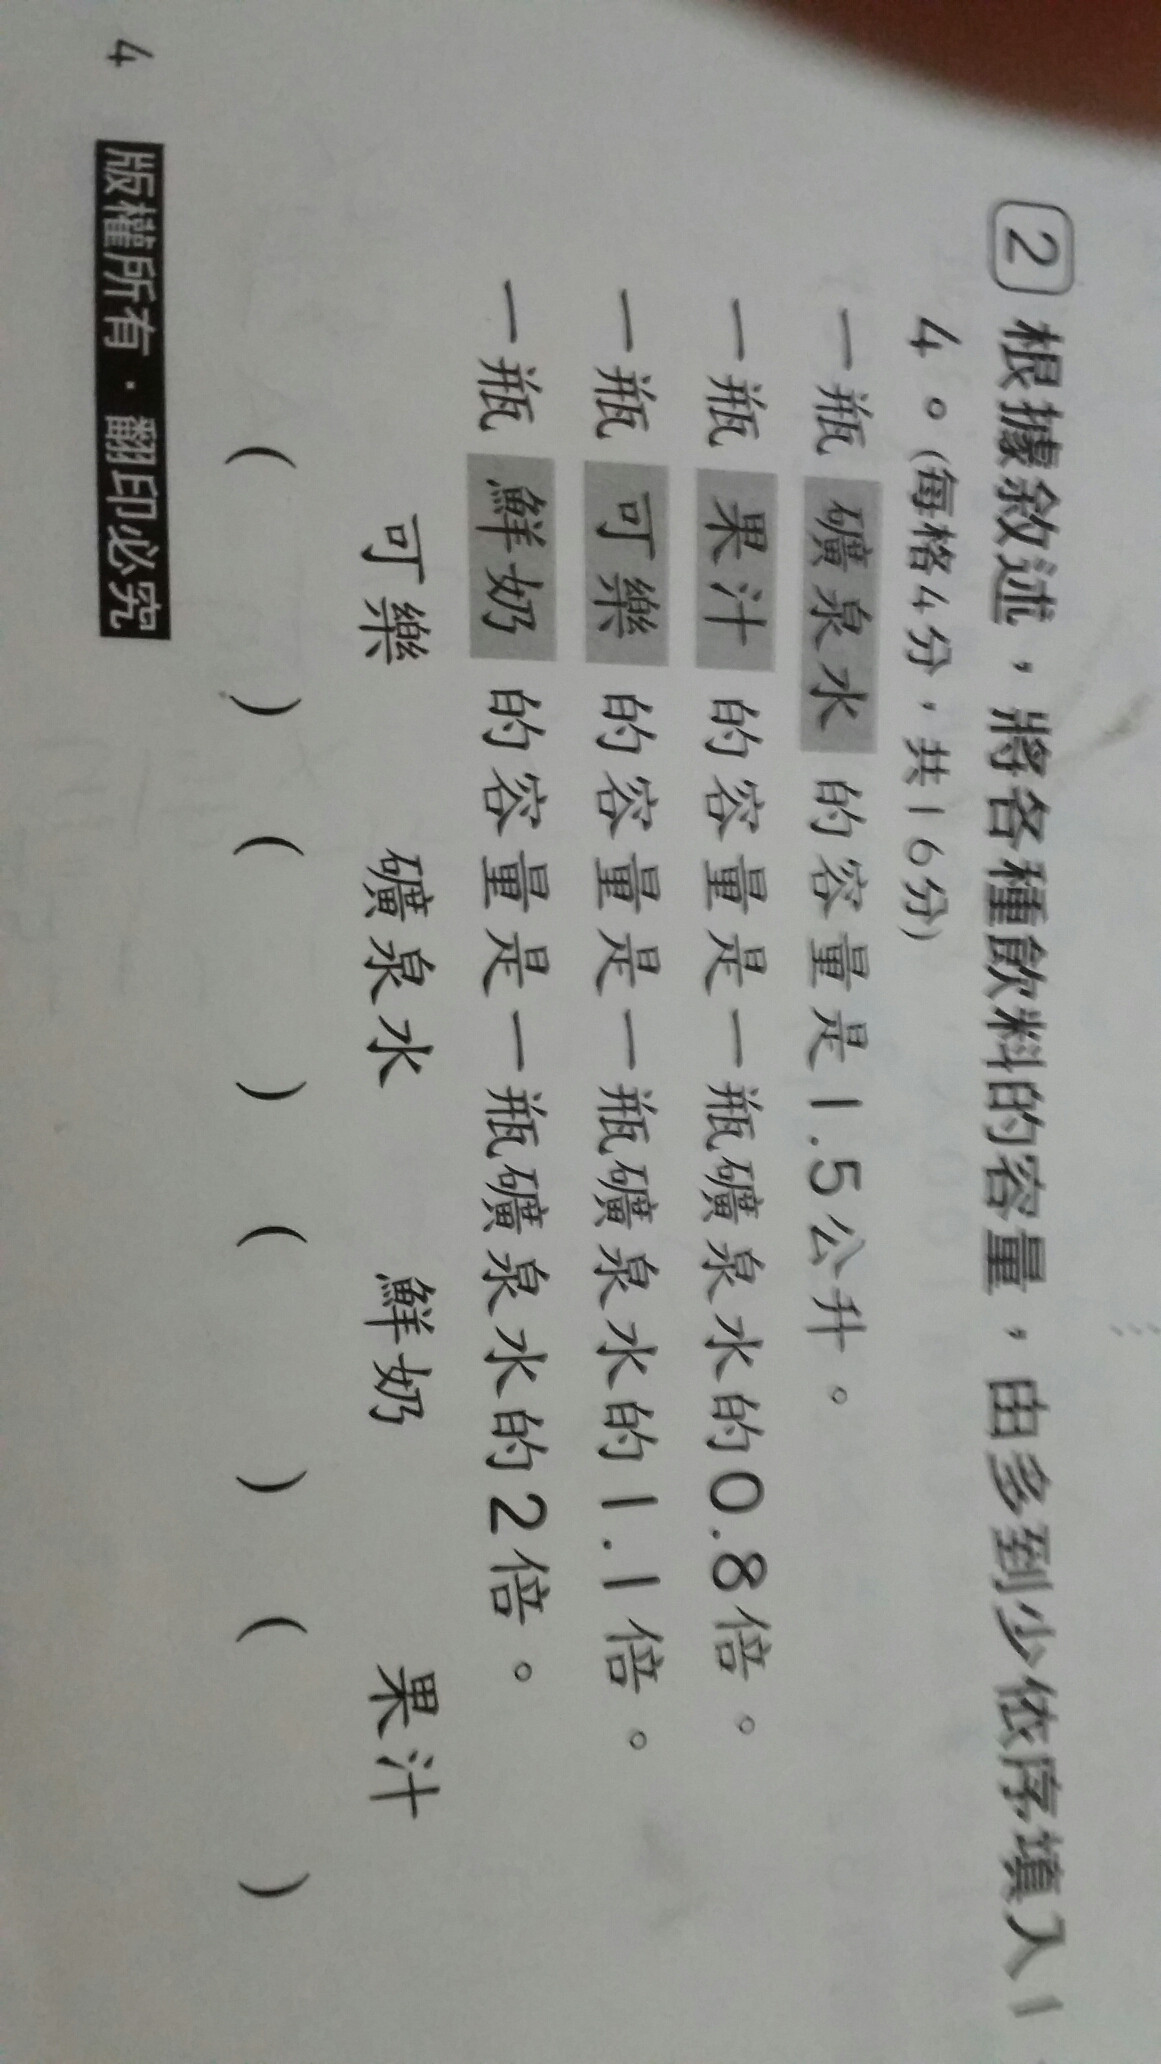 2 根據敘述，將各種飲料的容量，由多到少依序填入1
4。(每格4分，共16分)
一瓶 礦泉水 的容量是1.5公升。
一瓶 果汁 的容量是一瓶礦泉水的0.8倍。
一瓶 可樂 的容量是一瓶礦泉水的1.1倍。
一瓶 鮮奶 的容量是一瓶礦泉水的2倍。
可樂 礦泉水 鮮奶 果汁
( ) ( ) ( ) ( )
4 版權所有·翻印必究